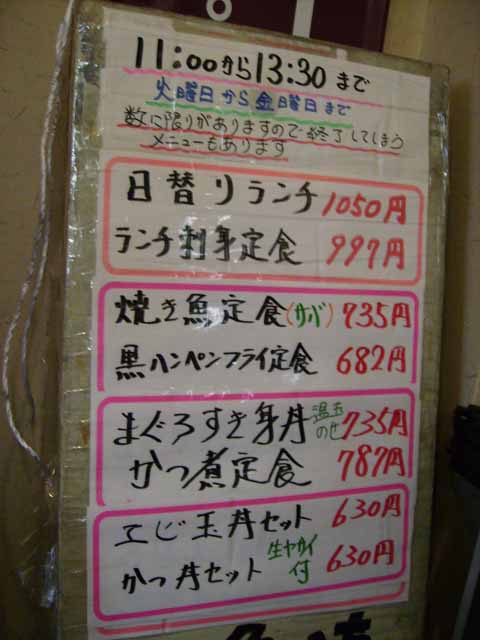 11:00から13:30まで
火曜日から金曜日まで
数に限りがありますので終了してしまう
メニューもあります
日替りランチ 1050円
ランチ刺身定食 997円
焼き魚定食(サバ) 735円
黒ハンペンフライ定食 682円
まぐろすき身丼 温玉のせ 735円
かつ煮定食 787円
エビ玉丼セット 630円
かつ丼セット 生ヤサイ付 630円